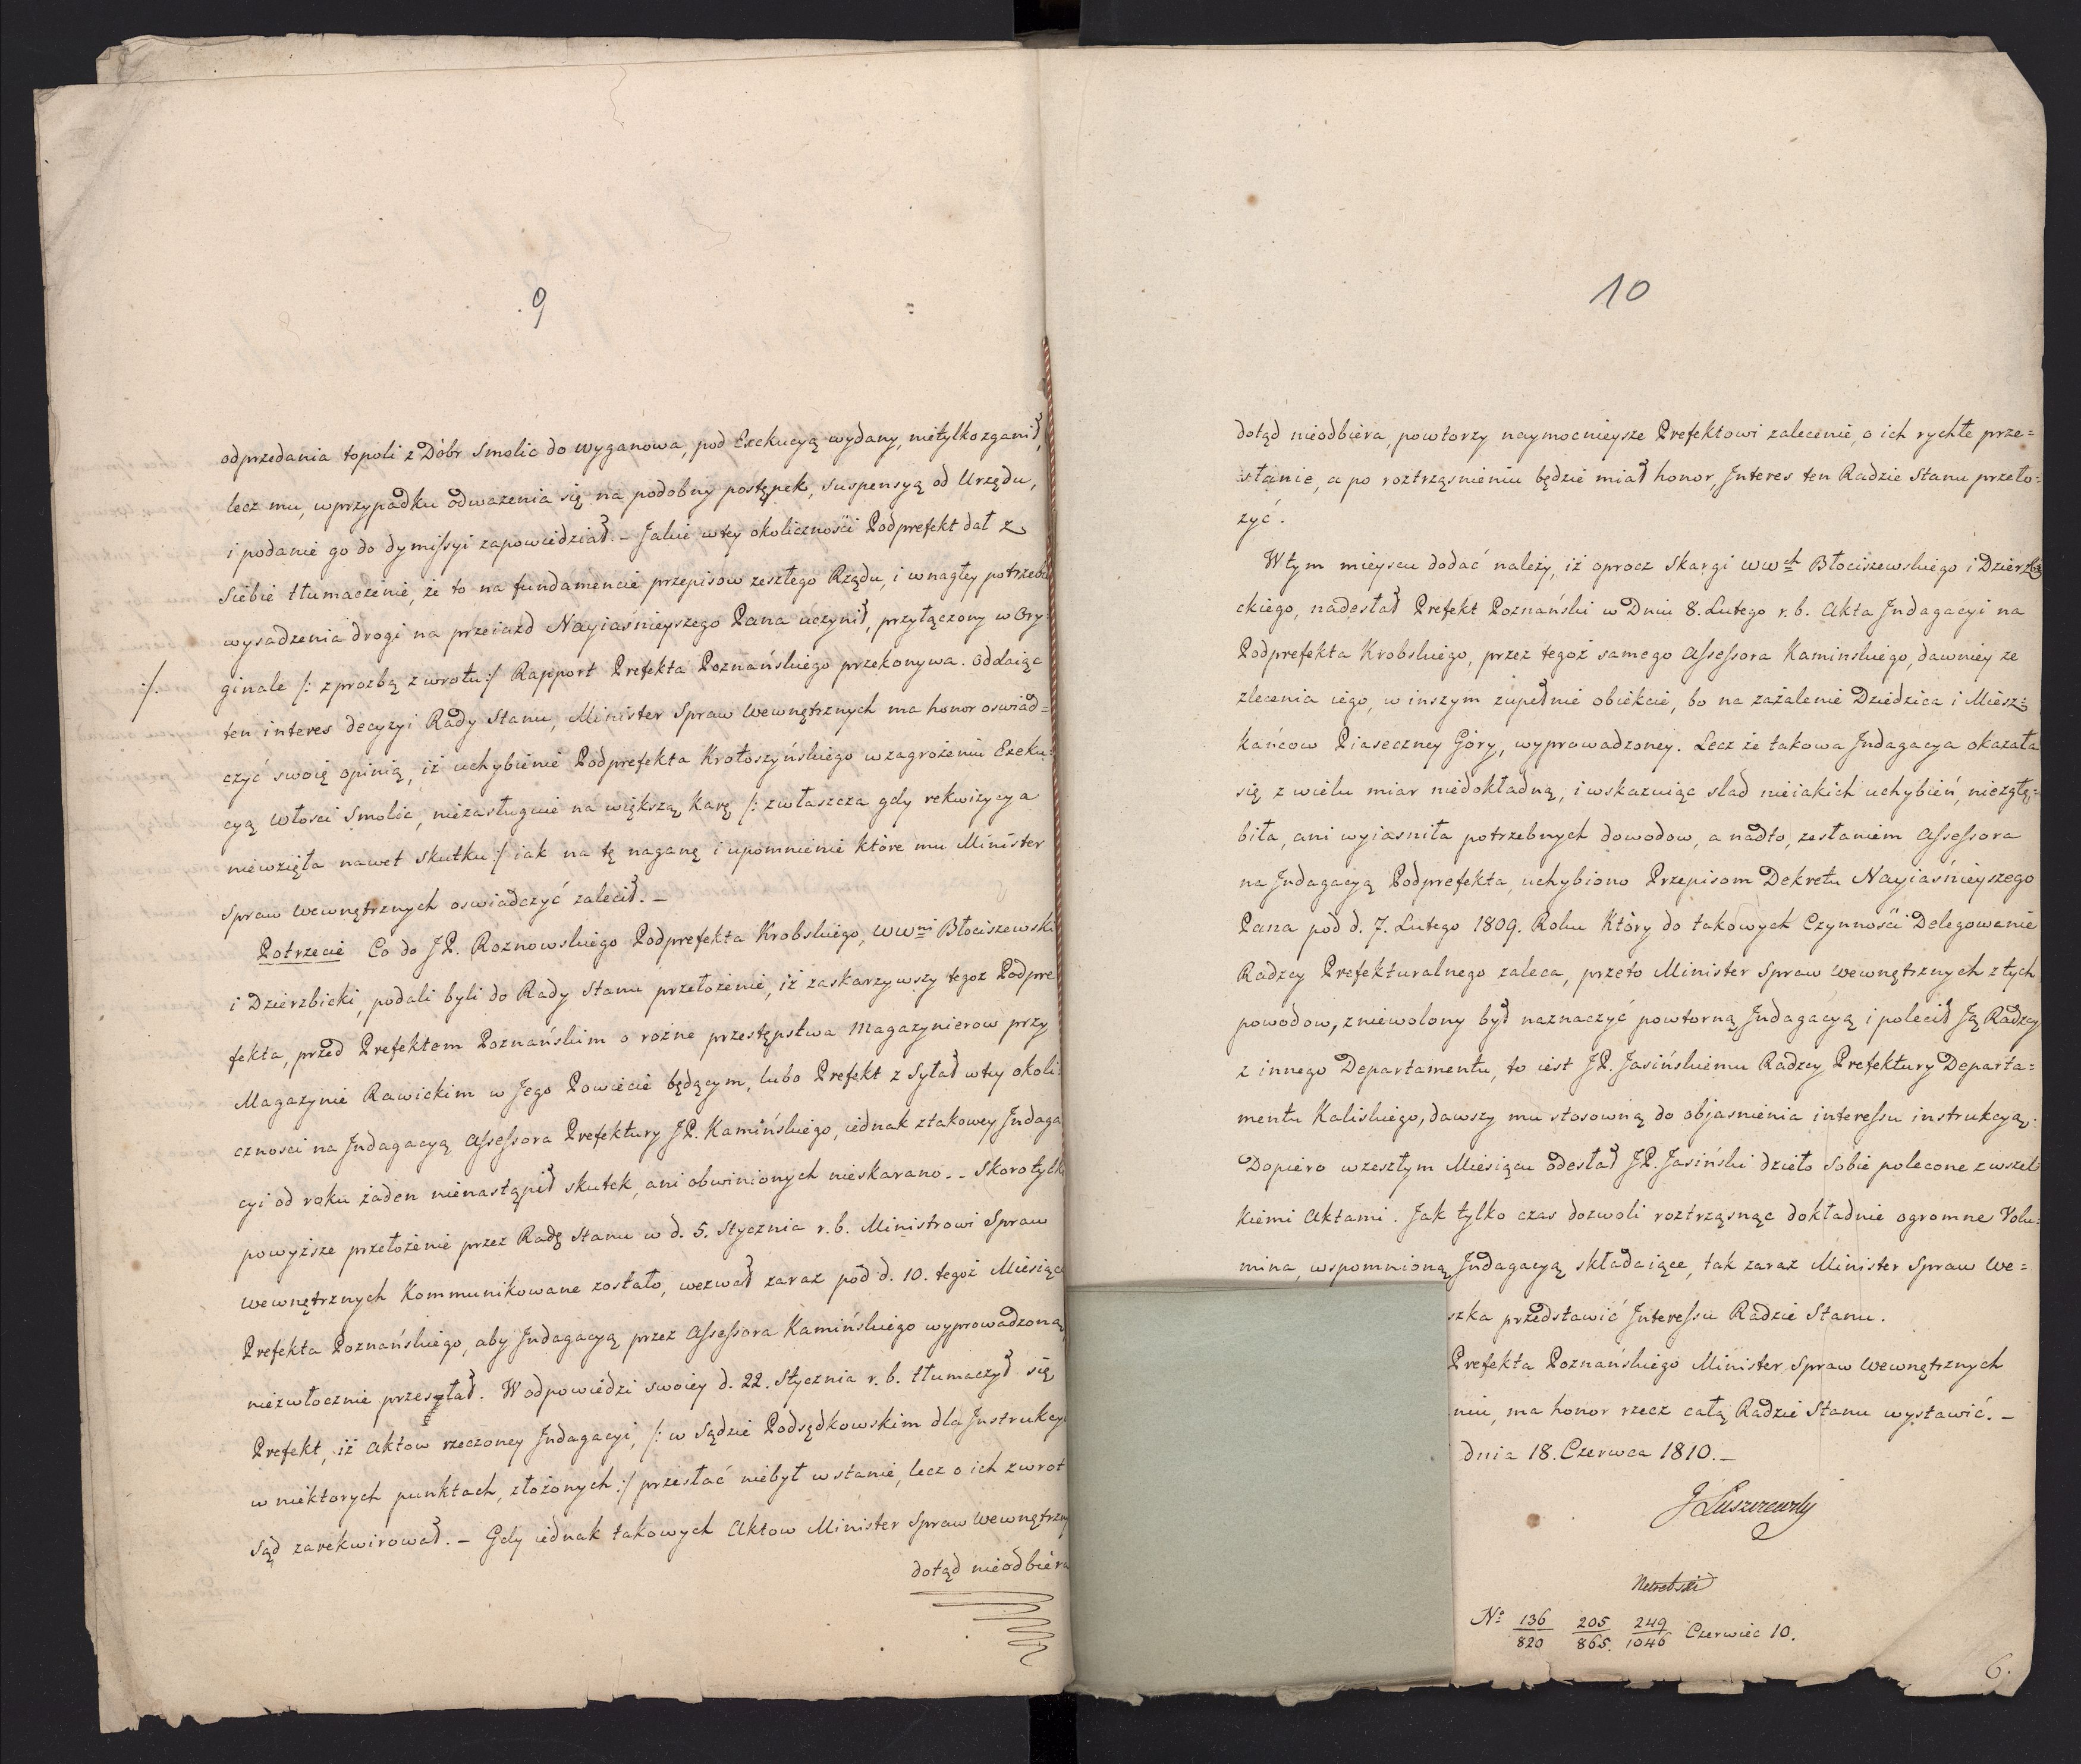 9
odprzedania topoli z Dóbr Smolic do Wyganowa, pod Exekucyą wydany, nietylko zganił,
lecz mu, wprzypadku odważenia się na podobny postępek, suspensyą od Urzędu,
i podanie go do dymissyi zapowiedział. – Jakie wtey okoliczności Podprefekt dał z
siebie tłumaczenie, że to na fundamencie przepisow zeszłego Rządu, i wnagłey potrzebie
wysadzenia drogi na przeiazd Nayiaśnieyszego Pana uczynił, przyłączony w Ory-
:/. ginale /: z prozbą zwrotu :/ Rapport Prefekta Poznańskiego przekonywa. Oddaiąc
ten interes decyzyi Rady Stanu, Minister Spraw Wewnętrznych ma honor oswiad=
czyć swoię opinią, iż uchybienie Podprefekta Krotoszyńskiego wzagrożeniu Exeku=
cyą Włości Smolic, niezasługuie na większą karę /: zwłaszcza gdy rekwizycya
niewzięła nawet skutku :/ iak na tę naganę i upomnienie które mu Minister
Spraw Wewnętrznych oswiadczyć zalecił. –
Potrzecie Co do JP. Roznowskiego Podprefekta Krobskiego, WWni Błociszewski
i Dzierzbicki, podali byli do Rady Stanu przełożenie, iż zaskarzywszy tegoz Podpre
fekta, przed Prefektem Poznańskim o rozne przestępstwa Magazynierow przy
Magazynie Rawickim w Jego Powiecie będącym, lubo Prefekt z syłał wtey okoli:
czności na Indagacyą Assessora Prefektury JP. Kamińskiego, iednak ztakowey Indaga
cyi od roku żaden nienastąpił skutek, ani obwinionych nieskarano. – Skoro tylko
powyższe przełożenie przez Radę Stanu w d. 5. Stycznia r. b. Ministrowi Spraw
Wewnętrznych Kommunikowane zostało, wezwał zaraz pod d. 10. tegoż Miesiąca
Prefekta Poznańskiego, aby Indagacyą przez Assessora Kamińskiego wyprowadzoną
niezwłocznie przesłał. W odpowiedzi swoiey d. 22. Stycznia r. b. tłumaczył się
Prefekt, iż Aktow rzeczoney Indagacyi, /: w Sądzie Podsędkowskim dla Instrukcyi
w niektorych punktach, złożonych :/ przesłać niebył wstanie, lecz o ich zwrot
Sąd zarekwirował. – Gdy iednak takowych Aktow Minister Spraw Wewnętrzny
dotąd nieodbiera
10
dotąd nieodbiera, powtorzy naymocnieysze Prefektowi zalecenie, o ich rychłe prze=
słanie, a po roztrząsnieniu będzie miał honor, Interes ten Radzie Stanu przeło=
zyć.
W tym mieyscu dodać należy, iż oprocz skargi WWch Błociszewskiego i Dzierzbi
ckiego, nadesłał Prefekt Poznański w Dniu 8. Lutego r. b. Akta Indagacyi na
Podprefekta Krobskiego, przez tegoż samego Assessora Kaminskiego, dawniey ze
zlecenia iego, w inszym zupełnie obiekcie, bo na zażalenie Dziedzica i Miesz=
kańcow Piaseczney Góry, wyprowadzoney. Lecz że takowa Indagacya okazała
się z wielu miar niedokładną, i wskazuiąc slad nieiakich uchybień, niezgłę=
biła, ani wyiasniła potrzebnych dowodow, a nadto, zesłaniem Assessora
na Indagacyą Podprefekta, uchybiono Przepisom Dekretu Nayiaśnieyszego
Pana pod d. 7. Lutego 1809. Roku Który do takowych Czynności Delegowanie
Radzcy Prefekturalnego zaleca, przeto Minister Spraw Wewnętrznych z tych
powodow, zniewolony był naznaczyć powtorną Indagacyą i polecił Ją Radzcy
z innego Departamentu, to iest JP. Jasińskiemu Radzcy Prefektury Departa=
mentu Kaliskiego, dawszy mu stosowną do objasnienia interessu instrukcyą.
Dopiero wzeszłym Miesiącu odesłał JP. Jasiński dzieło sobie polecone z wszel
kiemi Aktami. Jak tylko czas dozwoli roztrząsnąc dokładnie ogromne Volu=
mina, wspomnioną Indagacyą składaiące, tak zaraz Minister Spraw We=
szka przedstawić Interessu Radzie Stanu.
Prefekta Poznańskiego Minister Spraw Wewnętrznych
niu, ma honor rzecz całą Radzie Stanu wystawić. –
dnia 18. Czerwca 1810. –
J Łuszczewsky
No 136/820 205/865. 249/1046 Czerwiec 10.
6.